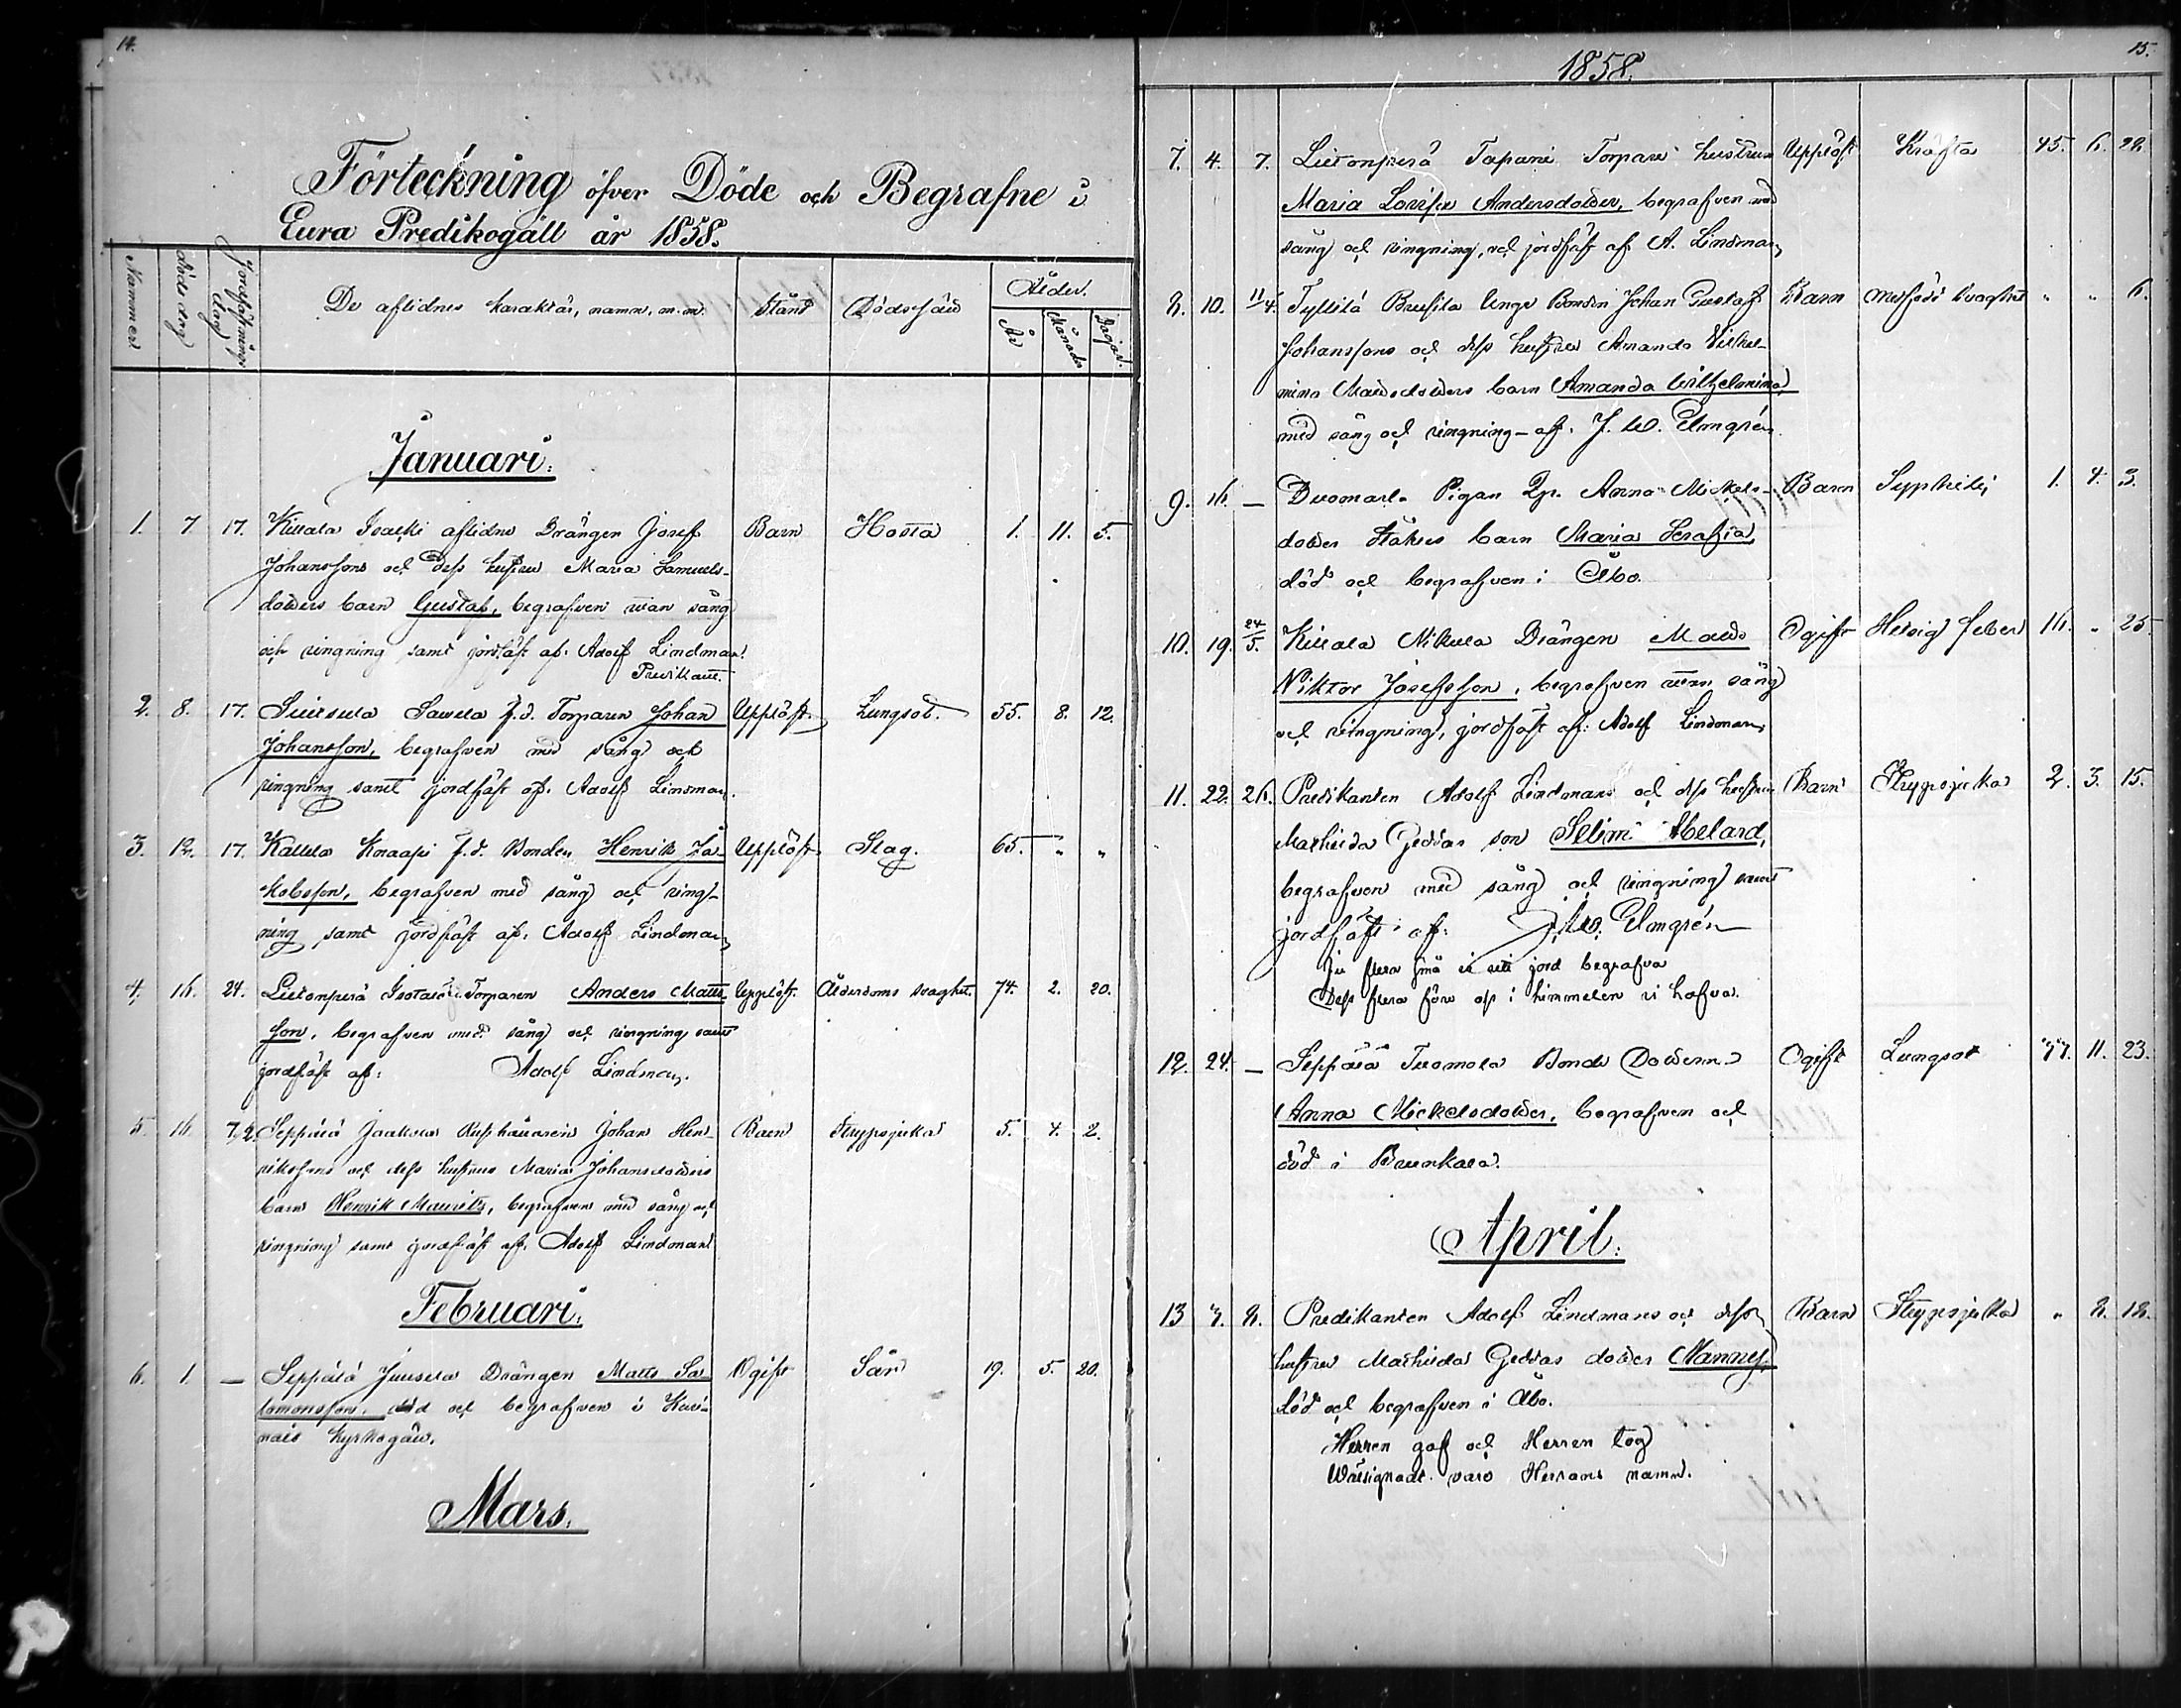 14.
Förteckning öfver Döde och Begrafne i
Eura Predikogäll år 1858.
Nummer
Döds dag
Jordfästnings dag
De aflidnes karaktär, namn, m.m.
Stånd
Dödssätt
Ålder.
År
Månader
Dagar.
Januari.
1. 7 17. aflidne Drängen Josef Barn Hosta 1. 11. 5.
Johanssons och dess hustru Maria Samuels-
dotters barn Gustaf, begrafven utan sång
och ringning samt jordfäst af. Adolf Lindman
Predikant.
2. 8. 17. Sawela f.d. Torparen Johan Upplöst. Lungsot. 55. 8. 12.
Johansson, begrafven med sång och
ringning samt jordfäst af. Adolf Lindman.
3. 12. 17. Knaapi f.d. Bonden Henrik Ja- Upplöst Slag. 65. " "
kobsson, begrafven med sång och ring-
ning samt jordfäst af. Adolf Lindman
4. 16. 24. Torparen Anders Matts Upplöst. Ålderdoms svaghet. 74. 2. 20.
son, begrafven med sång och ringning samt
jordfäst af: Adolf Lindman.
5. 16. 7/2. Seppälä Jaakola Johan Hen- Barn Strypsjuka 5. 4. 2.
rikssons och dess hustrus Maria Johansdotters
barn Henrik Mauritz, begrafven med sång och
ringning samt jordfäst af. Adolf Lindman
Februari.
6. 1. — Seppälä Juusela Drängen Matts Sa- Ogift Sår 19. 5. 20.
lomonsson, död och begrafven i
Mars.
1858.
15.
7. 4. 7. Tapani Torpare hustrun Upplöst Kräfta 45. 6. 22.
Maria Lovisa Andersdotter, begrafven med
sång och ringning, och jordfäst af A. Lindman
8. 10. 11/4. Unge Bonden Johan Gustaf Barn medfödd svaghet " " 6.
Johanssons och dess hustrus Amanda Vilhel-
mina barn Amanda Wilhelmina
med sång och ringning - af. J. W. Elmgrén.
9. 16. — Pigan Anna Mickels- Barn Syphilis 1. 4. 3.
dotter barn Maria Serafia,
död och begrafven i Åbo.
10. 19. 24/5. Drängen Matts Ogift Hetsig feber 16. " 25
Viktor Josefsson, begrafven utan sång
och ringning, jordfäst af: Adolf Lindman
11. 22. 26. Predikanten Adolf Lindmans och dess hustru Barn Strypsjuka 2. 3. 15.
Mathilda Geddas son Selim Abelard,
begrafven med sång och ringning samt
jordfäst af: J. W. Elmgrén
Ju flera små i jord begrafva
Dess flera före oss i himmelen vi hafva.
12. 24. — Seppälä Tuomola Bonde Dottern Ogift Lungsot 11. 23.
Anna Mickelsdotter, begrafven och
död i
April.
13 7. 8. Predikanten Adolf Lindmans och dess Barn Strypsjuka " 8. 18.
hustrus Mathilda Geddas dotter Nanny,
död och begrafven i Åbo.
Herren gaf och Herren tog
Wälsignadt vare Herrans namn.